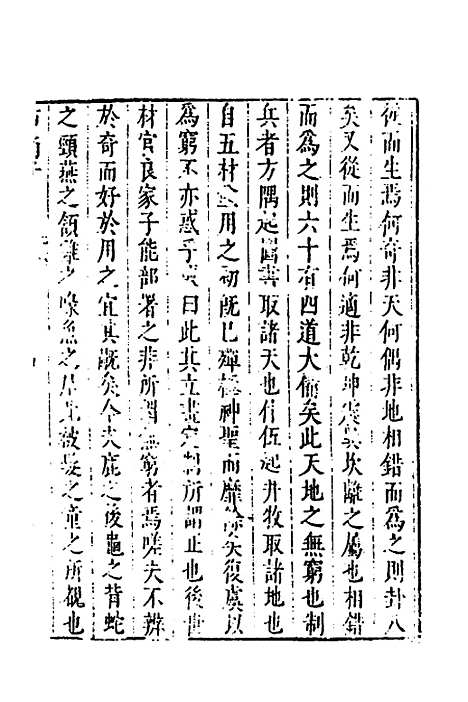 從而生焉何奇非天何偶非地相錯而爲之則卦八
矣又從而生焉何適非乾坤震巽坎離之屬也相錯
而爲之則六十有四道大備矣此天地之無窮也制
兵者方隅起圖書取諸天也什伍起井牧取諸地也
自五材並用之初旣已殫極神聖而靡餘矣復虞以
爲窮不亦惑乎或曰此其立畫定制所謂正也後世
材官良家子能部署之非所謂無窮者焉嗟夫不辨
於奇而好於用之宜其漑矣今夫鹿之後龜之背蛇
之頸燕之頷雞之喙魚之尾此被髮之童之所覩也